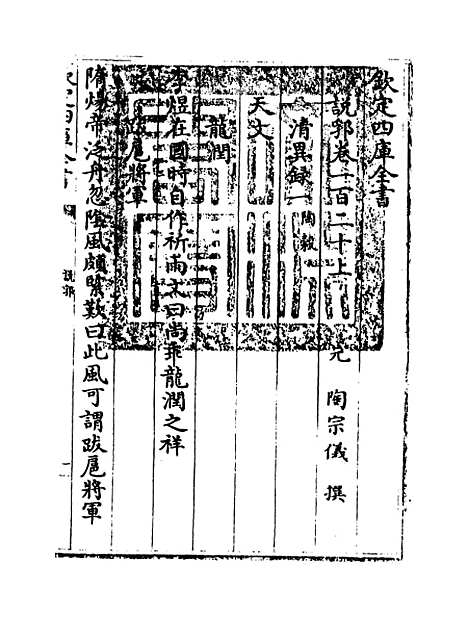 欽定四庫全書
説郛卷一百二十上
元 陶宗儀 撰
清異録一 陶穀
天文
龍潤
李煜在國時自作祈雨文曰尚乖龍潤之祥
跋扈將軍
隋煬帝泛舟忽陰風頗緊歎曰此風可謂跋扈將軍
欽定四庫全書
説郛
一